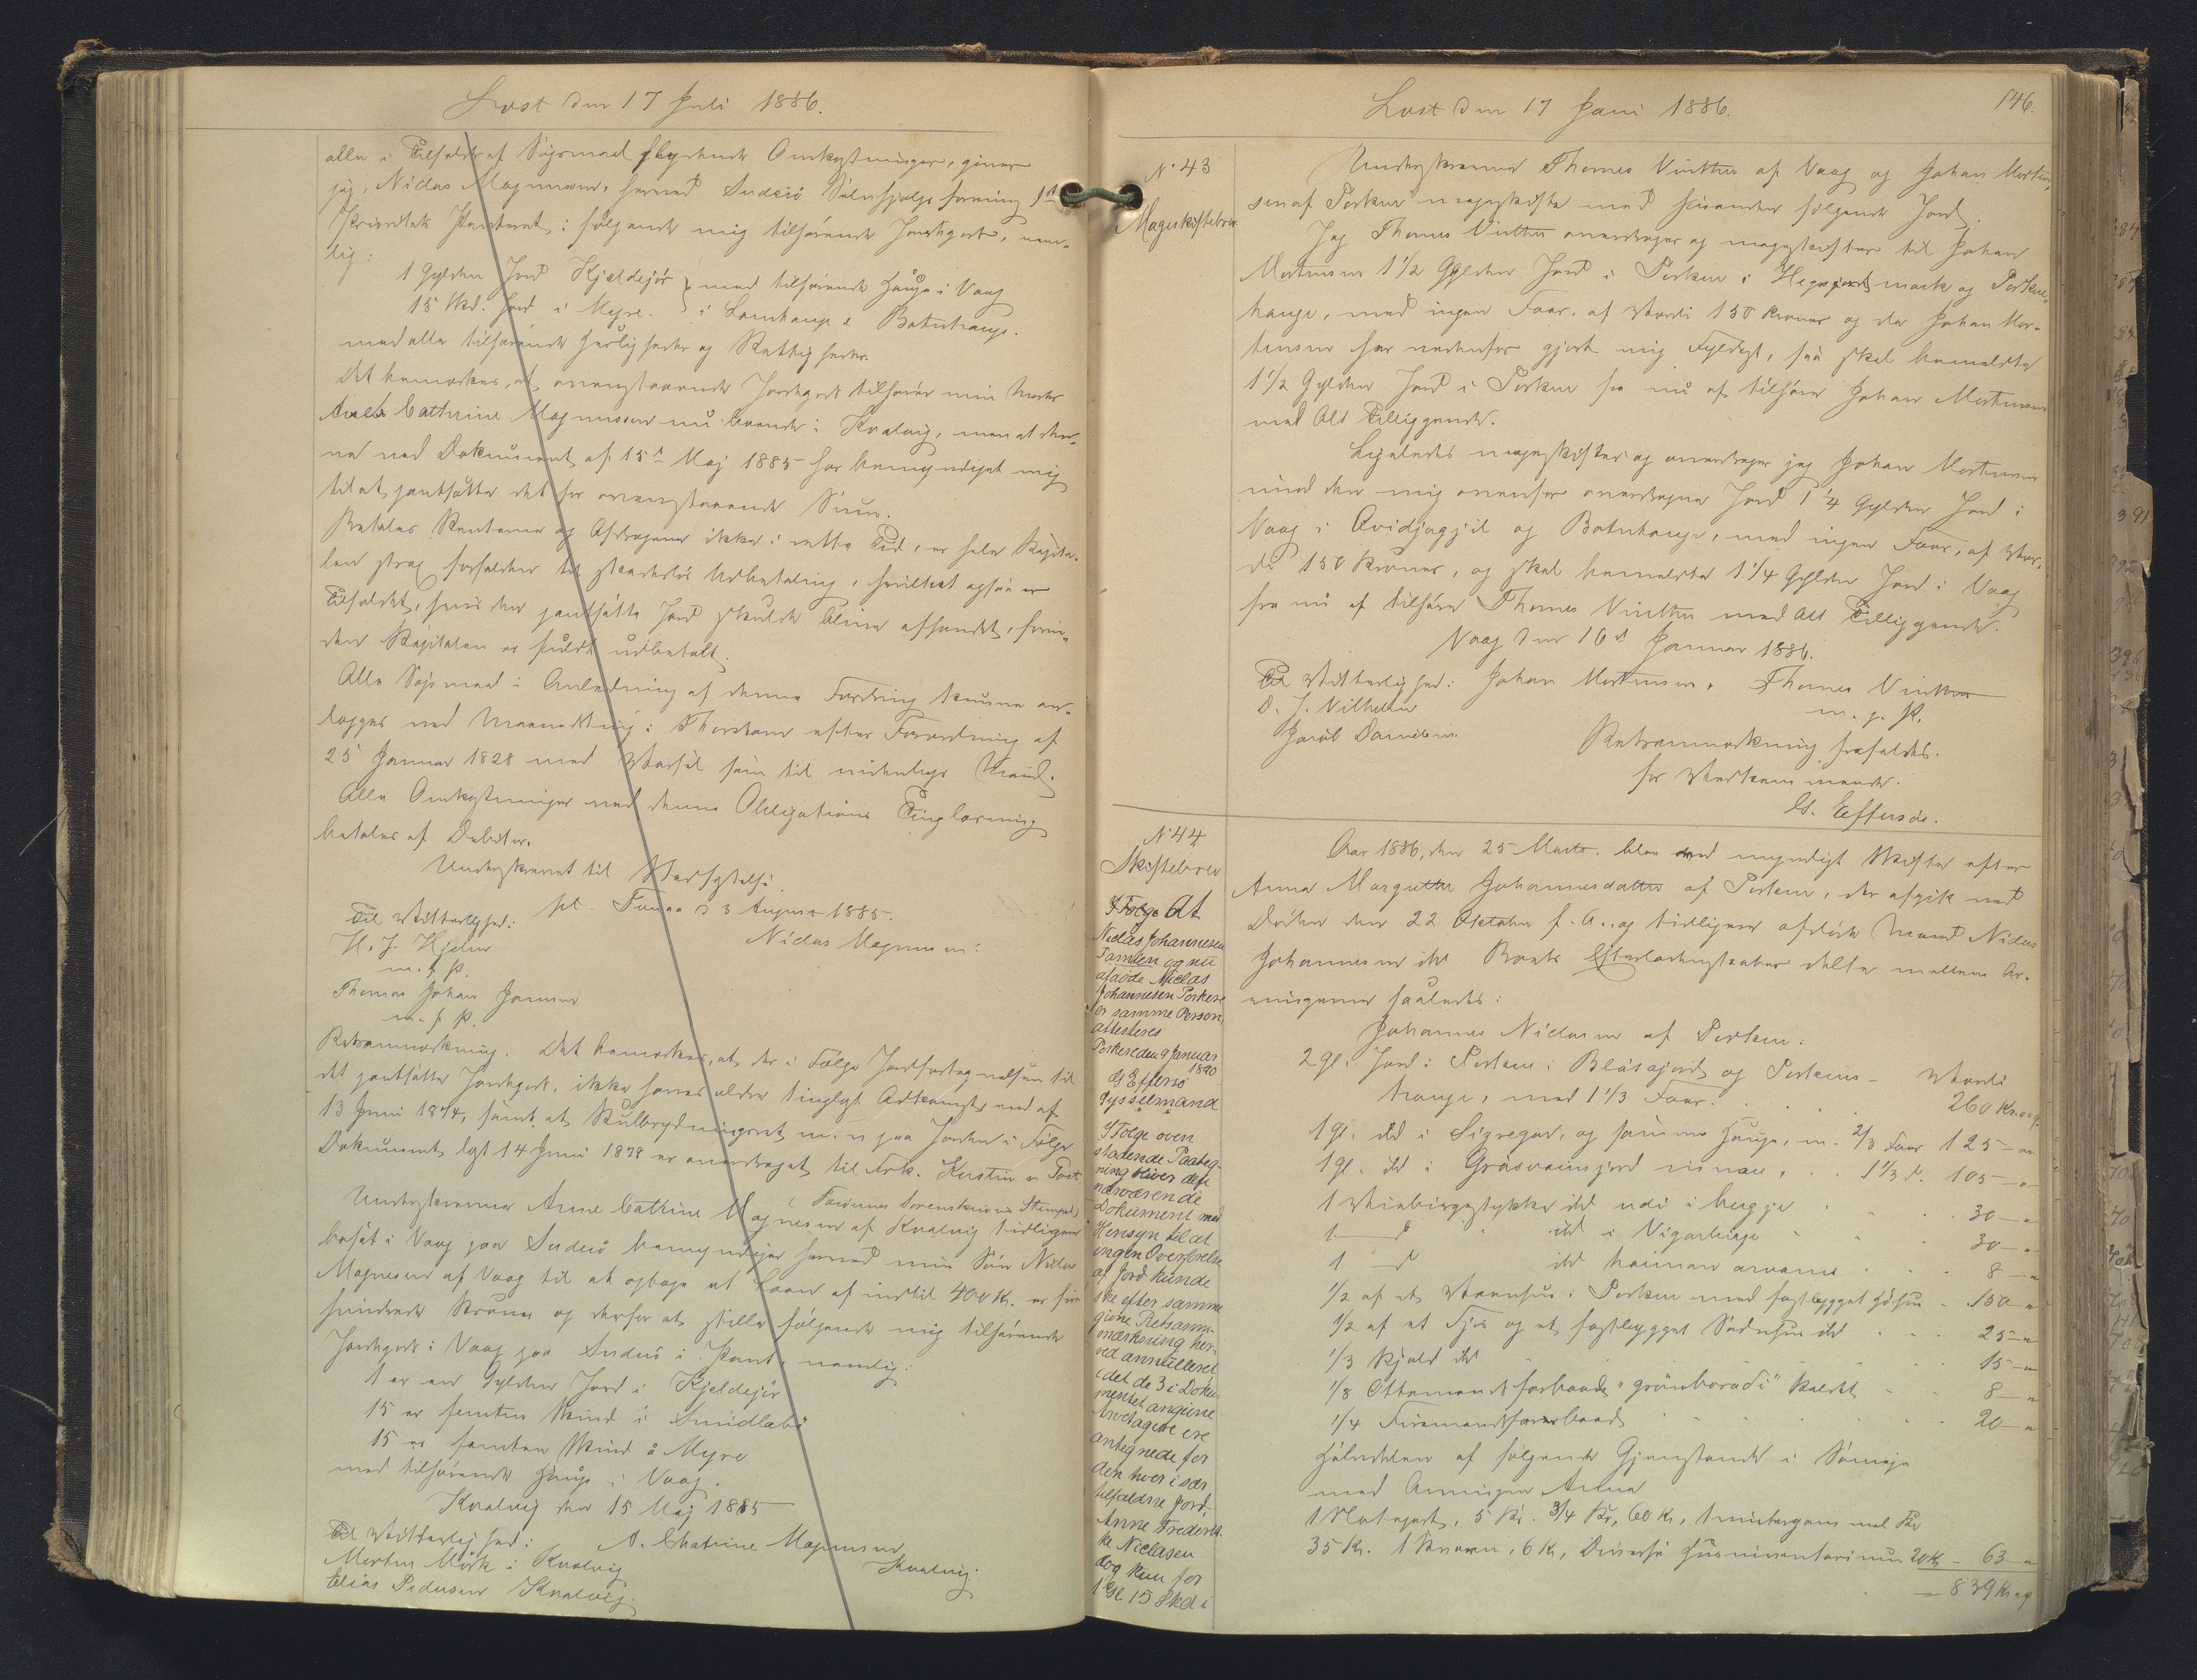 Læst den 17 Juli 1886.
alle i Tilfælde af Søgsmaal flydende Omkostninger, giver
jeg, Niclas Magnussen, herved Suderø Selvhjælps forening 1st
Prioritets Panteret i følgende mig tilhørende Jordegods, nem-
lig:
1 Gylden Jord Kjeldejør } med tilhørende Hauge i Vaag
15 Skd. Jord i Myre. } i Lamhauge & Botnhauge.
med alle tilhørende Herligheder og Rettigheder.
Det bemærkes, at ovenstaaende Jordegods tilhører min Moder
Anne Cathrine Magnussen nu boende i Kvalvig, men at den-
ne ved Dokument af 15de Maj 1885 har bemyndiget mig
til at pantsætte det for ovenstaaende Sum.
Betales Renterne og Afdragene ikke i rette Tid, er hele Kapita-
len strax forfalden til skadesløs Udbetaling, hvilket ogsaa er
Tilfældet, hvis den pantsatte Jord skulde blive afhændet, foren-
den Kapitalen er fuldt udbetalt.
Alle Søgsmaal i Anledning af denne Fordring kunne an-
lægges ved Manedsting i Thorshavn efter Forordning af
25 Januar 1828 med Varsel som til indenbygs Mænd.
Alle Omkostninger ved denne Obligations Tinglæsning
betales af Debitor.
Underskrevet til Stadfæstelse
pt. Tvøraa d 3 August 1885.
Til Vitterlighed: Niclas Magnussen:
H. J. Hjelm
m. f. P.
Thomas Johan Joensen
m. f. P.
Retsanmærkning. Det bemærkes, at der i Følge Jordfortegnelsen til
det pantsatte Jordegods, ikke haves ældre tinglyst Adkomst, end af
13 Juni 1874, samt at Kulbrydningsret m. v. paa Jorden i Følge
Dokument lyst 14 Juni 1878 er overdraget til Ark. Kerstin v Post.
Færøernes Sorenskriveris Stempel
Underskrevne Anne Cathrine Magnesen af Kvalvig tidligere
bosat i Vaag paa Suderø bemyndiger herved min Søn Niclas
Magnesen af Vaag til at optage et Laan af indtil 400 Kr. er fire
hundrede Kroner og derfor at stille følgende mig tilhørende
Jordegods i Vaag paa Suderø i Pant, nemlig:
1 er een Gylden Jord i Kjeldejør
15 er femten Skind i Smidlabø
15 er femten Skind å Myre
med tilhørende Hauge i Vaag.
Kvalvig den 15 Maj 1885
Til Vitterlighed: A. Chatrine Magnussen
Morten Mørk i Kvalvig Kvalvig.
Elias Pedersen Kvalvig.
Læst den 17 Juni 1886. 146.
N° 43
Mageskiftebrev
Underskrevne Thomas Vinther af Vaag og Johan Morten-
sen af Porkere mageskifte med hinanden følgende Jord.
Jeg Thomas Vinther overdrager og mageskifter til Johan
Mortensen 1 1/2 Gylden Jord i Porkere i Hegajordsmark og Porkere-
hauge, med ingen Faar, af Værdi 150 Kroner og da Johan Mor-
tensen har nedenfor gjort mig Fyldest, saa skal bemeldte
1 1/2 Gylden Jord i Porkere fra nu af tilhøre Johan Mortensen
med Alt Tilliggende.
Ligeledes mageskifter og overdrager jeg Johan Mortensen
imod den mig ovenfor overdragne Jord 1 1/4 Gylden Jord i
Vaag i Qvidjagjil og Botnhauge, med ingen Faar, af Vær-
di 150 Kroner, og skal bemeldte 1 1/4 Gylden Jord i Vaag
fra nu af tilhøre Thomas Vinther med Alt Tilliggende.
Vaag den 16de Januar 1886.
Til Vitterlighed: Johan Mortensen. Thomas Vinther
D. J. Vilhelm m. f. P.
Jacob Danielsen.
Retsanmærkning frafaldes.
for Vedkommende.
G. Effersøe.
N° 44
Skiftebrev
I Følge At
Niclas Johannesen
Tomsen og nu
afdøde Niclas
Johannesen Porkere
er samme Person,
attesteres
Porkere den 9 Januar
1890
G Effersø
Sysselmand
I Følge oven
stående Paateg-
ning bliver den
nærværende
Dokument med
Hensyn til at
ingen Overførelse
af Jord kunde
ske efter samme
givne Retsanm-
mærkning her-
ved annulleret
idet de 3 i Doku-
mentet angivne
Arvetagere ere
antegnede for
den hver i sær
tilfaldne Jord,
Anne Frederik-
ke Niclasen
dog kun for
1 Gl 15 Skd i
Aar 1886, den 25 Marts. blev ved myndigt Skifte efter
Anna Margretha Johannesdatter af Porkere, der afgik ved
Døden den 22 Oktober f. A., og tidligere afdøde Mand Niclas
Johannesen ibd Boets Efterladenskaber delte mellem Ar-
vingerne saaledes:
Johannes Niclasen af Porkere:
2 gl. Jord i Porkere i Blåsajord og Porkeres- Værdi
hauge, med 1 1/3 Faar. 260 Kroner.
1 gl. ibd i Sigregar, og samme Hauge, m. 2/3 Faar 125 — "
1 gl. ibd i Gråsvansjord innare, 1 1/3 d. 105 — "
1 Steinbirgestykke ibd udi i bugji 30 — "
1 — d ibd i Vigarhauge 30 — "
1 — d ibd 8 — "
1/2 af et Vaanhus i Porkere med fastbygget Hjhus 150 — "
1/2 af et Fjós og et fastbygget Sødnhus ibd 25 — "
1/3 Hjald ibd 15 — "
1/8 Ottemandsfarbaad "Grønborade" kaldt 8 — "
1/4 Firemandsfarbaad 20 — "
Halvdelen af følgende Gjenstande i Sameje
med Arvingen Anna
1 Slategard, 5 Kr. 3/4 Kr, 60 Kr, 1 mindegam mel Kr
35 Kr. 1 Kværn, 6 Kr, Diverse Husinventarium 20 Kr — 63 — "
= 839 Kr